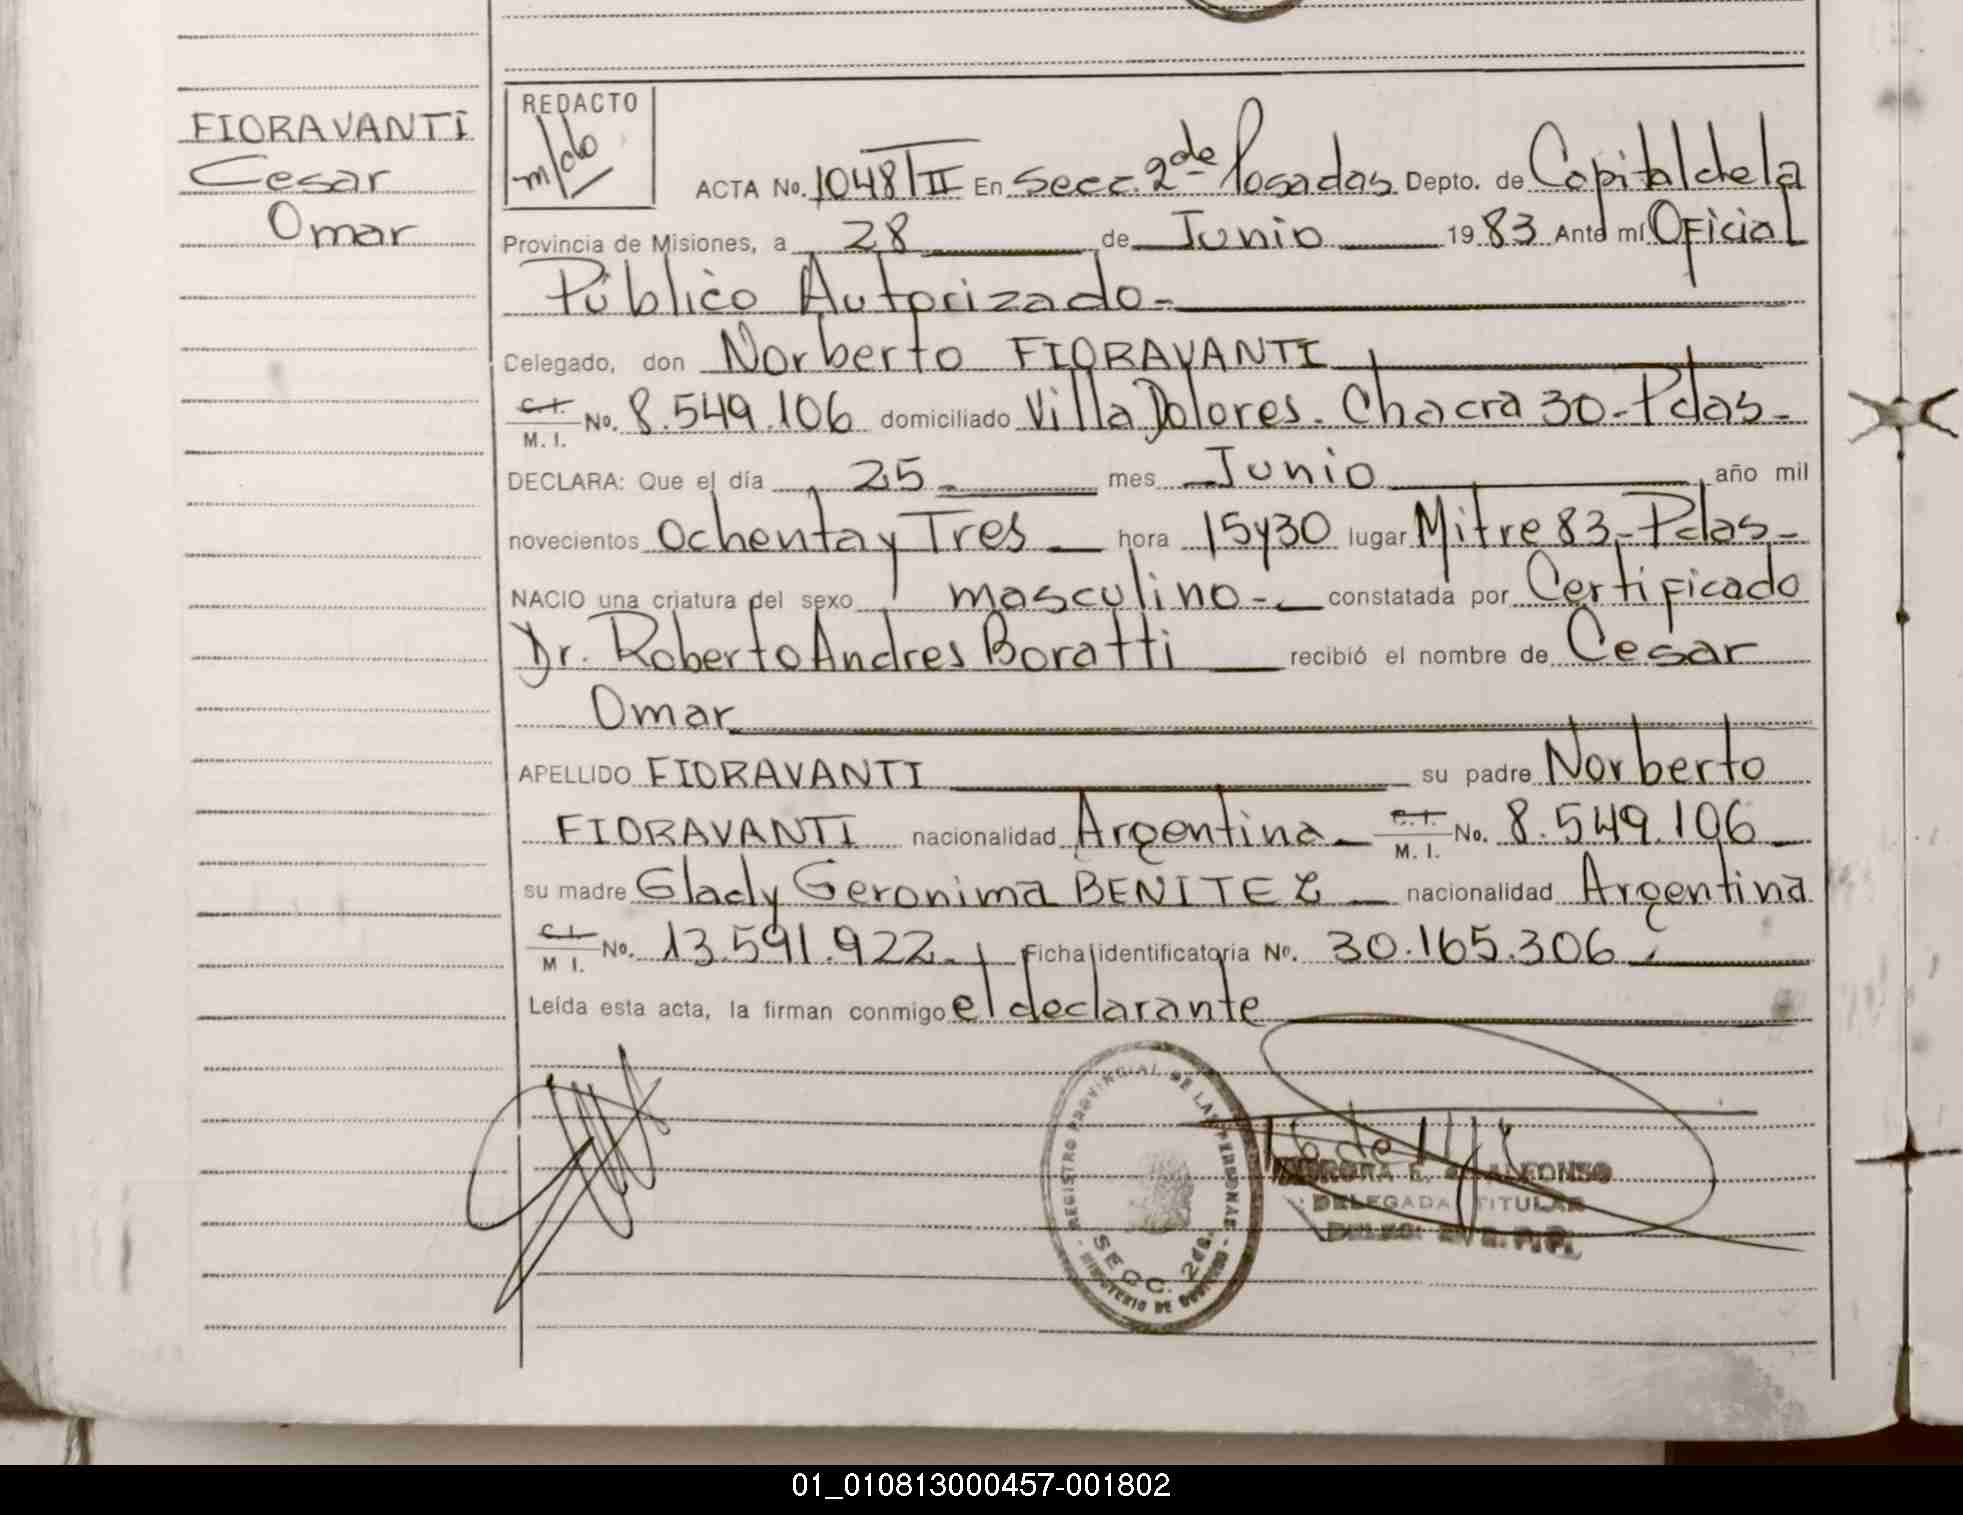 FIORAVANTI
Cesar
Omar
REDACTO
m/do
ACTA No. 1048/TII En Secc. 2da Posadas Depto. de Capital de la
Provincia de Misiones, a 28 de Junio 1983 Ante mí Oficial
Público Autorizado-
Celegado, don Norberto FIORAVANTI
C.I.
M. I. No. 8.549.106 domiciliado Villa Dolores. Chacra 30-Pdas-
DECLARA: Que el día 25- mes Junio año mil
novecientos Ochenta y Tres hora 15y30 lugar Mitre 83-Pdas-
NACIO una criatura del sexo masculino- constatada por Certificado
Dr. Roberto Andres Boratti recibió el nombre de Cesar
Omar
APELLIDO FIORAVANTI su padre Norberto
FIORAVANTI nacionalidad Argentina- C.I.
M. I. No. 8.549.106
su madre Glady Geronima BENITEZ nacionalidad Argentina
C.I.
M I. No. 13.591.922- Ficha identificatoria No. 30.165.306
Leída esta acta, la firman conmigo el declarante
REGISTRO PROVINCIAL DE LAS PERSONAS
SECC. 2da.
MINISTERIO DE GOBIERNO
ALFONSO
DELEGADA TITULAR
01_010813000457-001802